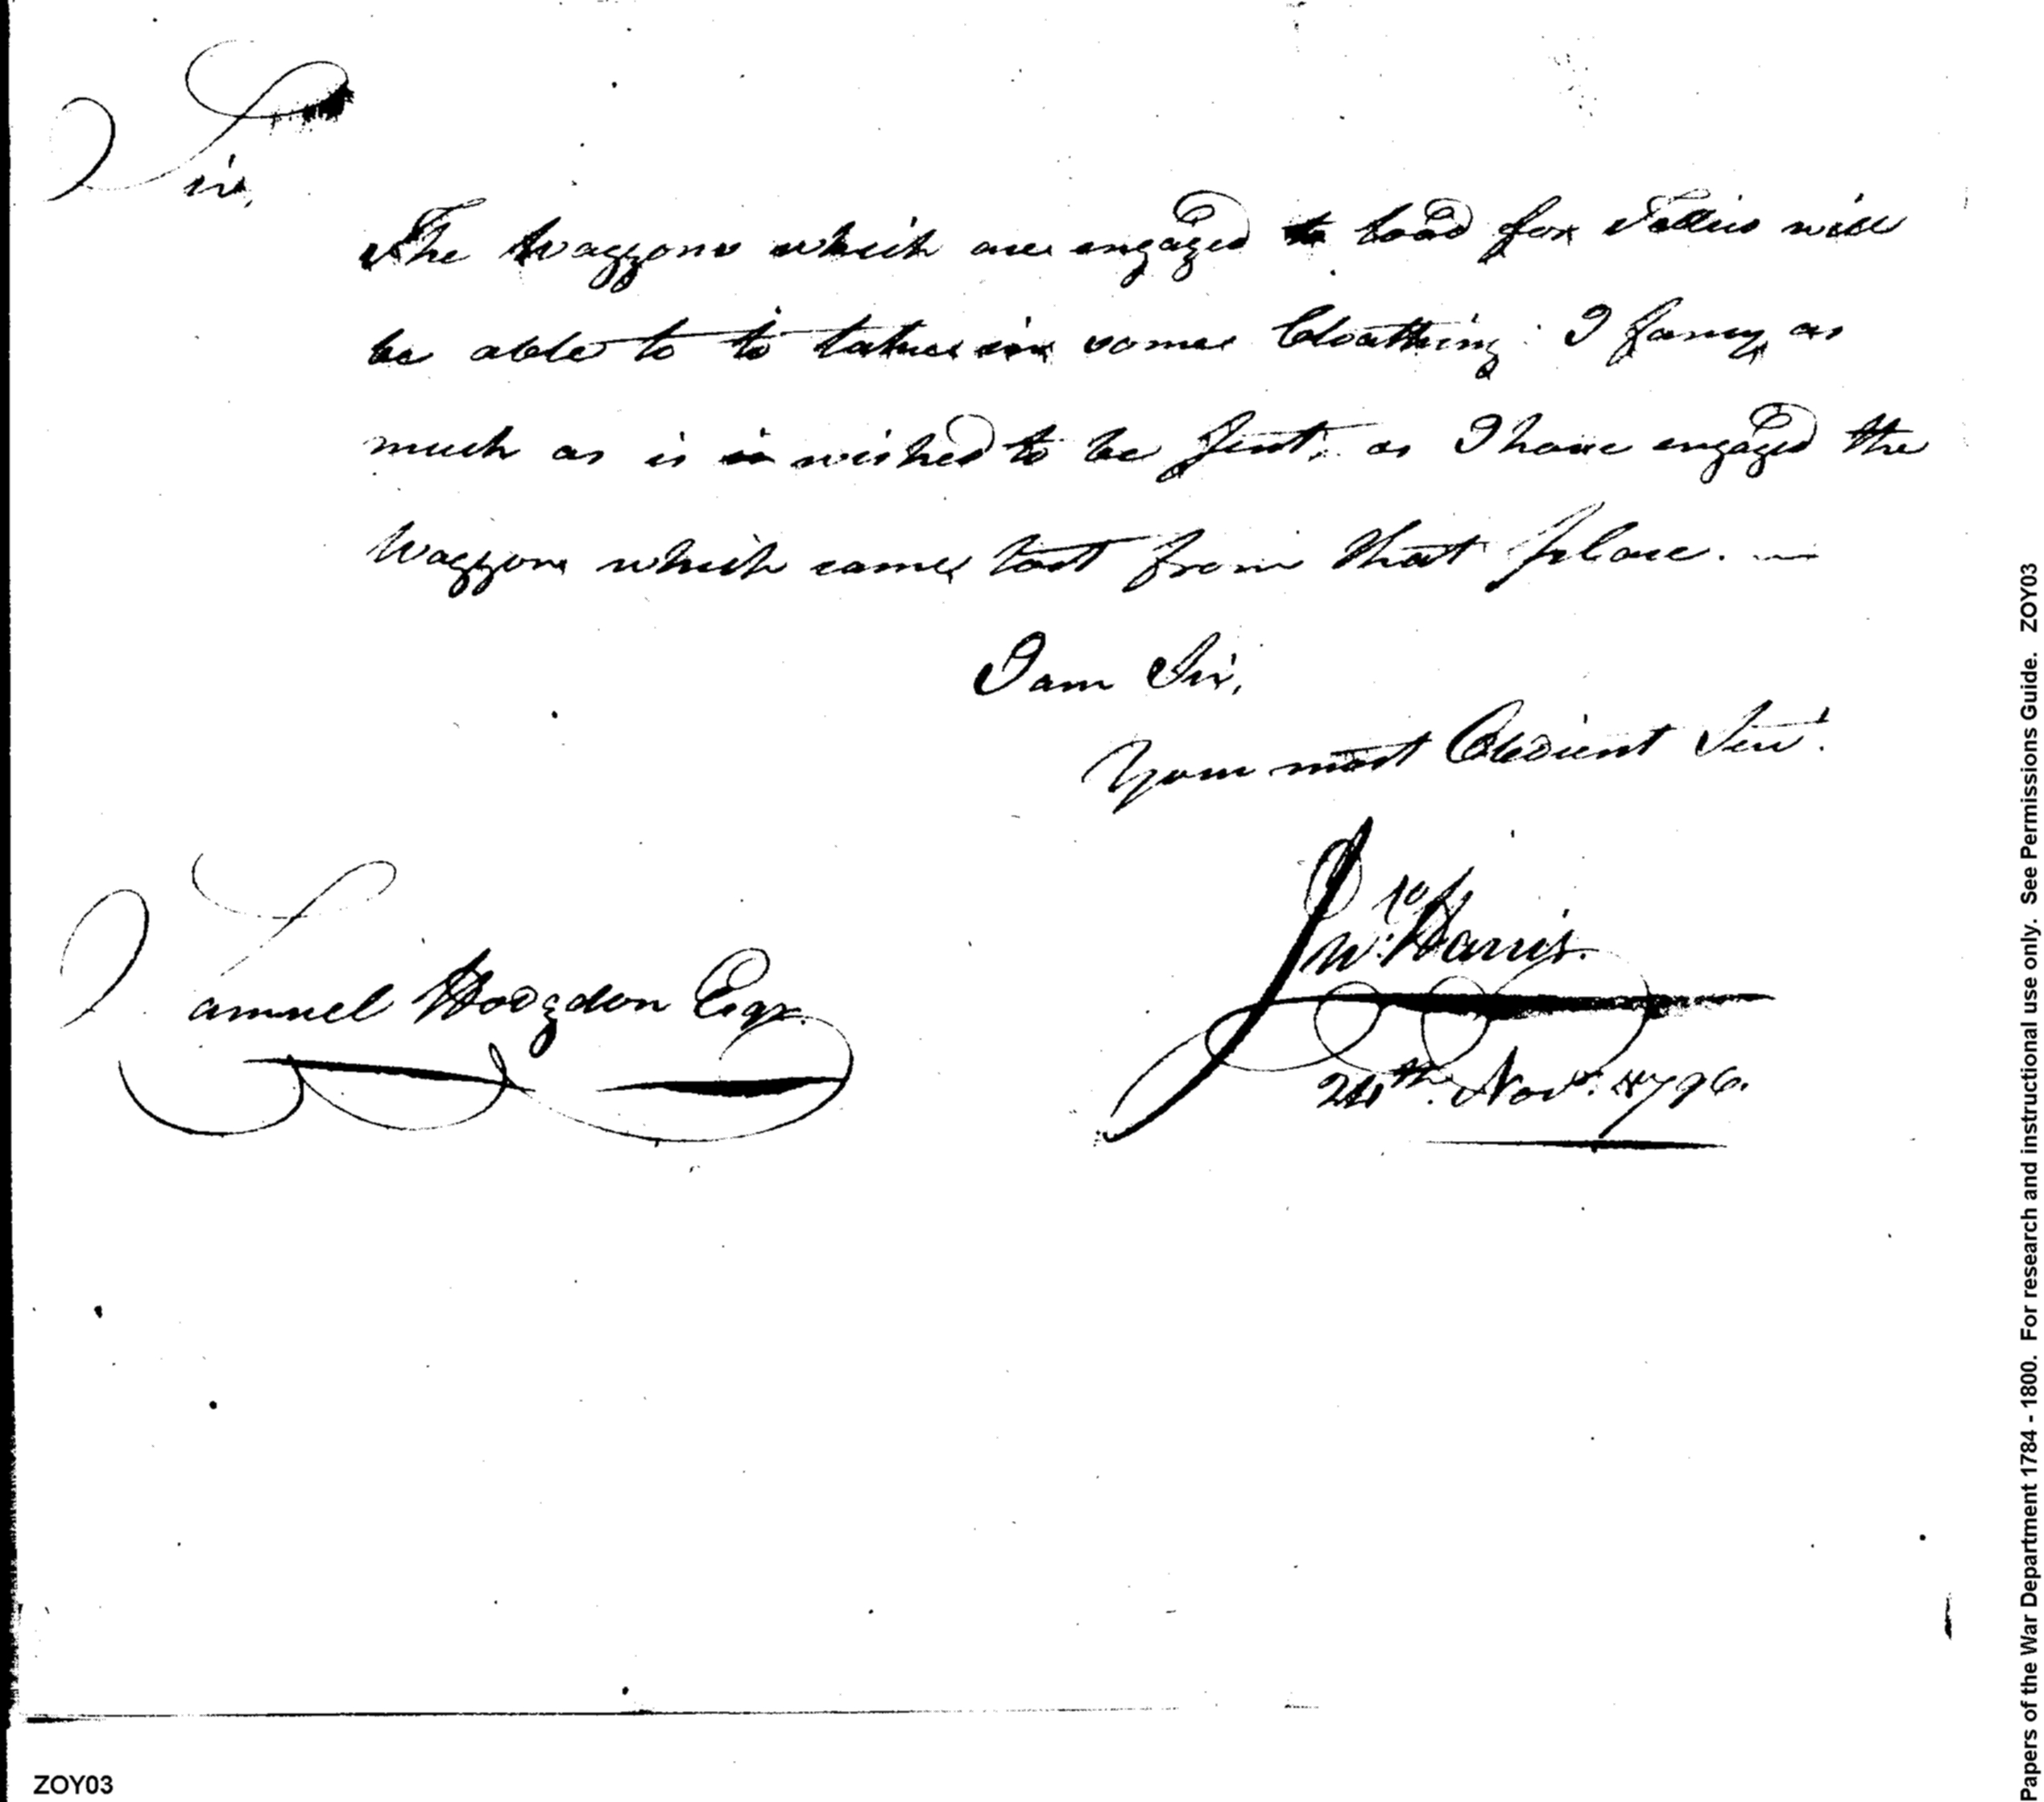 Sir,
The Waggons which are engaged to load for will
be able to to take in some Cloathing. I fancy as
much as is is wished to be sent, as I have engaged the
Waggons which came last from that place. —
I am Sir,
Your most Obedient Serv.t
Jn.o Harris.
Samuel Hodgdon Esqr.
24th. Nov.r 1796.
ZOY03
Papers of the War Department 1784 - 1800. For research and instructional use only. See Permissions Guide. ZOY03